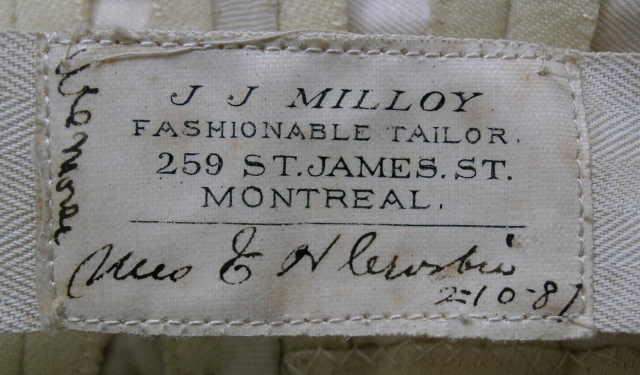 J J MILLOY
FASHIONABLE TAILOR.
259 ST. JAMES. ST.
MONTREAL.
E H
2-10-87